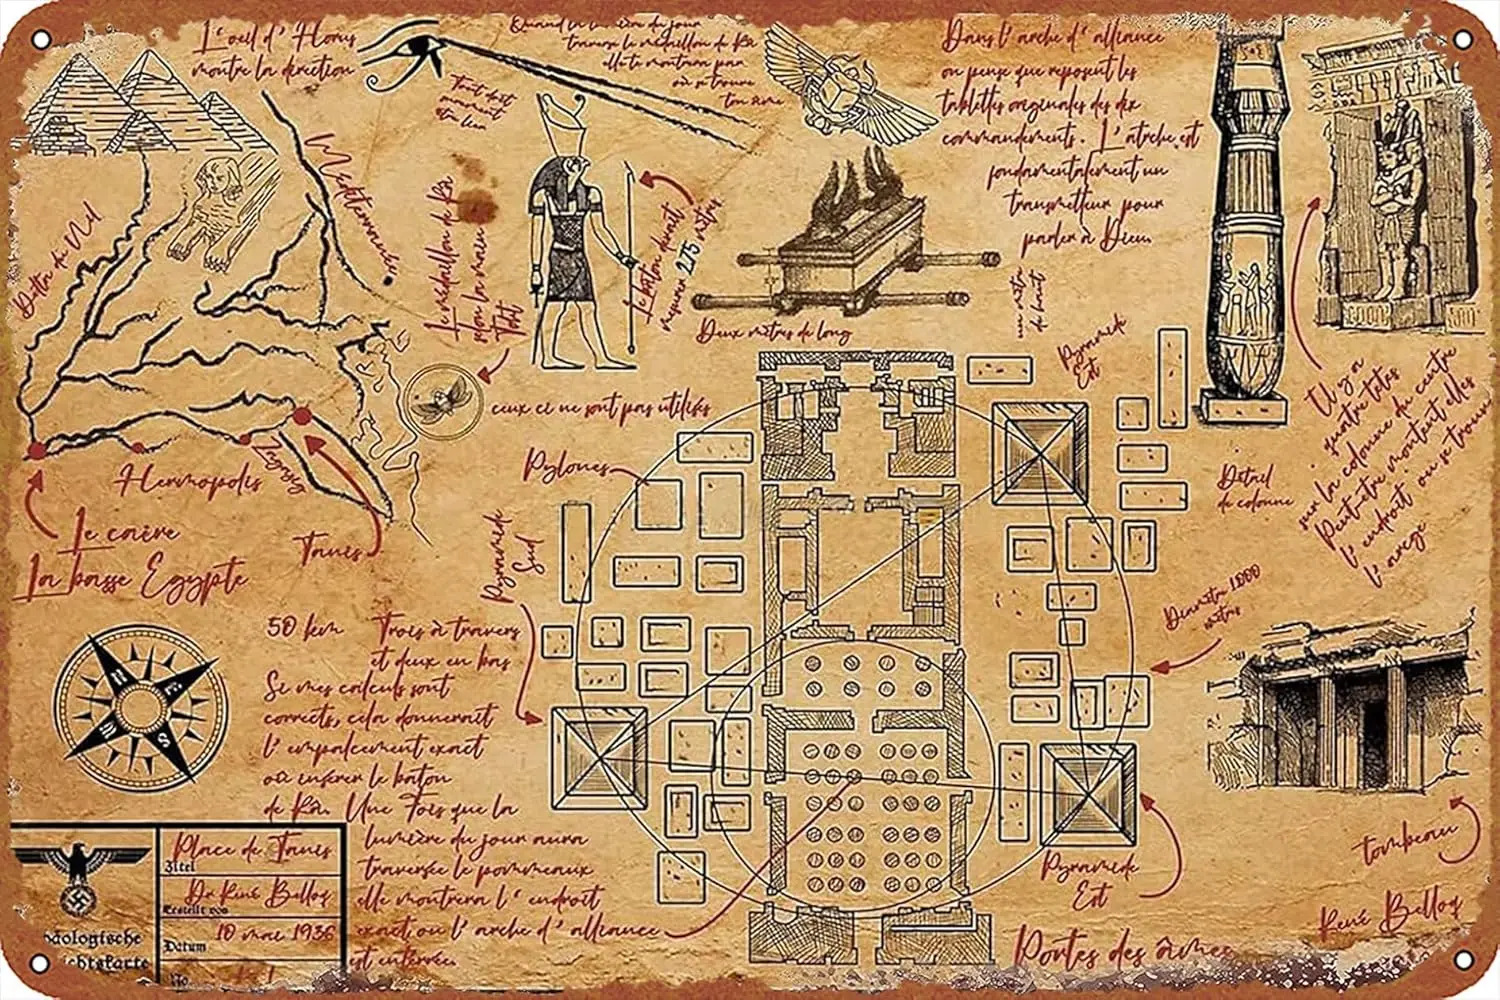 L'oeil d' Horus
montre la direction
Quand la lumière du jour
traverse le médaillon de Râ
elle te montrera par
où se trouve
ton âme
Tout doit
Dans l'arche d' alliance
on pense que reposent les
tablettes originales des dix
commandements. L'atrche est
fondamentalement un
transmetteur pour
parler à Dieu.
Méditerranée
Delta du Nil
Le médaillon de Râ
selon la main
Toht
Le bâton devait
mesurer 275 mètres
Deux mètres de long
un mètre
de haut
ceux ci ne sont pas utilisés
Pyramide
Est
Il y a
quatre tetes
sur la colonne du centre
Peut-etre montrent elles
l' endroit ou se trouve
l'arege
Détail
de colonne
Pylones
Hermopolis
Zagazig
Le caire
Tanis
La basse Egypte
Pyramide
Sud
Diametre 1000
mètres
50 km
Trois à travers
et deux en bas
Si mes calculs sont
corrects, cela donnerait
l' empalcement exact
où insérer le bâton
de Râ. Une Fois que la
lumière du jour aura
traversée le pommeaux
elle montrera l' endroit
exact ou l' arche d' alliance
est enterrée.
N
E
S
W
tombeau
Pyramide
Est
René Belloq
Portes des âmes
Place de Tanis
Titel
Dr René Belloq
Erstellt von
10 mai 1936
Datum
No